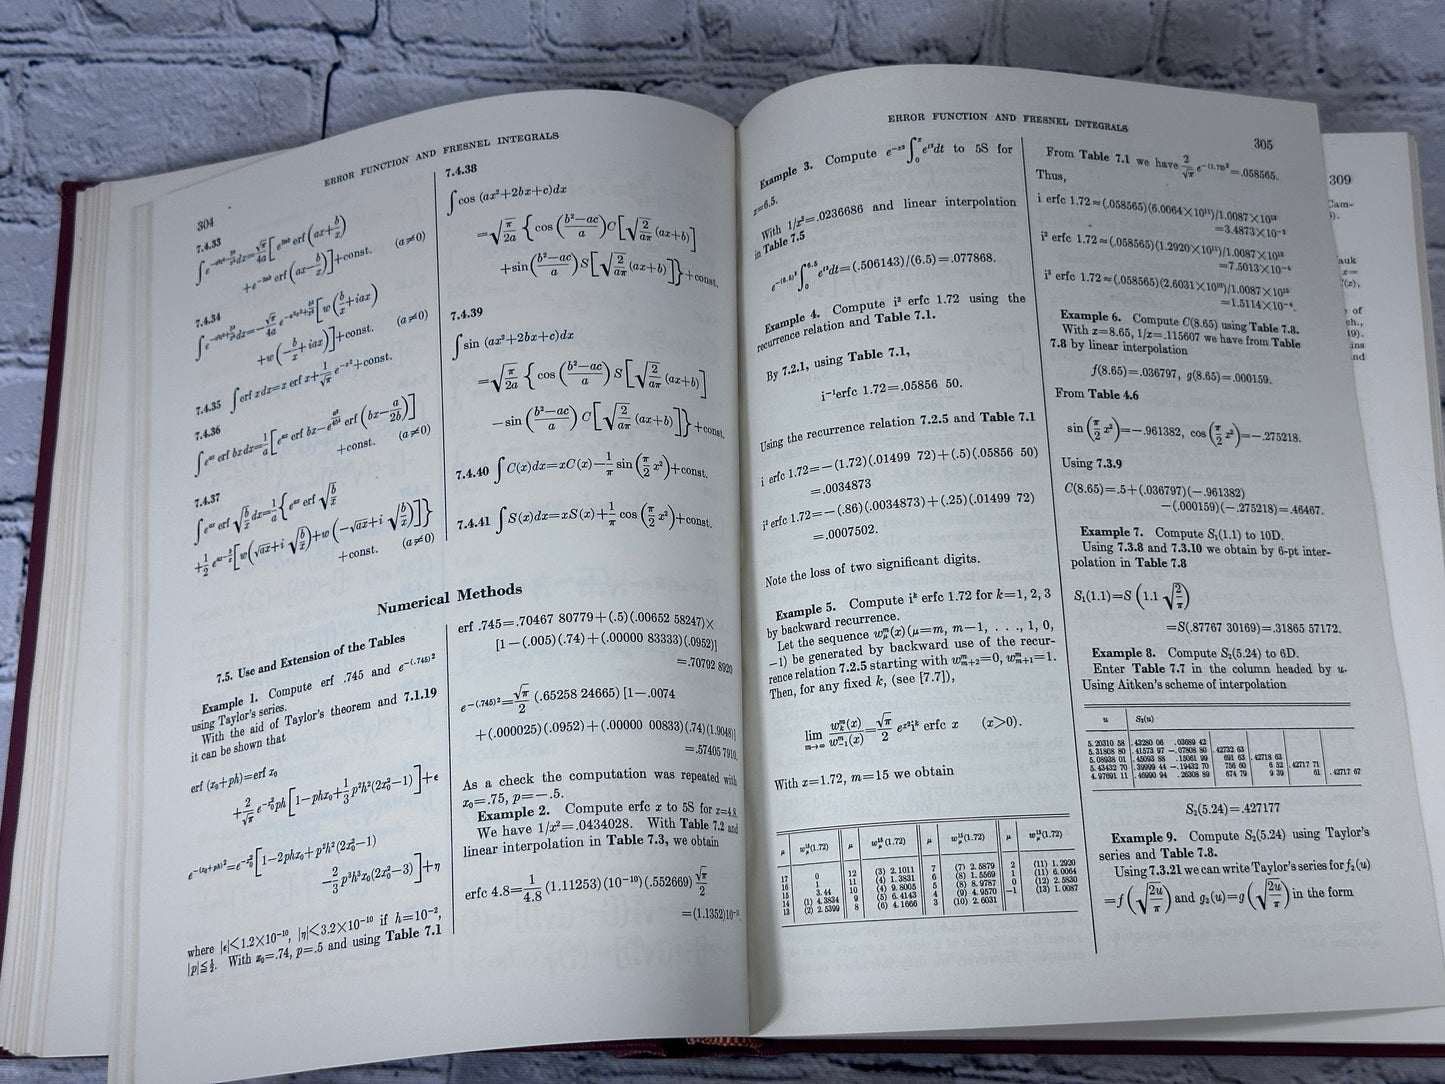 ERROR FUNCTION AND FRESNEL INTEGRALS
304
7.4.33
∫e^{-a²x²-b²/x²}dx=√π/4a[e^{2ab} erf(ax+b/x)
+e^{-2ab} erf(ax-b/x)]+const. (a≠0)
7.4.34
∫e^{-a²x²+b²/x²}dx=-√π/4a e^{-a²x²+b²/x²}[w(b/x+iax)
+w(-b/x+iax)]+const. (a≠0)
7.4.35 ∫erf xdx=x erf x+1/√π e^{-x²}+const.
7.4.36
∫e^{ax} erf bxdx=1/a[e^{ax} erf bx-e^{a²/4b²} erf(bx-a/2b)]
+const. (a≠0)
7.4.37
∫e^{ax} erf √(b/x) dx=1/a{e^{ax} erf √(b/x)
+1/2 e^{ax-b/x}[w(√ax+i√(b/x))+w(-√ax+i√(b/x))]}
+const. (a≠0)
7.4.38
∫cos (ax²+2bx+c)dx
=√(π/2a){cos((b²-ac)/a)C[√(2/aπ)(ax+b)]
+sin((b²-ac)/a)S[√(2/aπ)(ax+b)]}+const.
7.4.39
∫sin (ax²+2bx+c)dx
=√(π/2a){cos((b²-ac)/a)S[√(2/aπ)(ax+b)]
-sin((b²-ac)/a)C[√(2/aπ)(ax+b)]}+const.
7.4.40 ∫C(x)dx=xC(x)-1/π sin(π/2 x²)+const.
7.4.41 ∫S(x)dx=xS(x)+1/π cos(π/2 x²)+const.
Numerical Methods
7.5. Use and Extension of the Tables
Example 1. Compute erf .745 and e^{-(.745)²}
using Taylor's series.
With the aid of Taylor's theorem and 7.1.19
it can be shown that
erf (x₀+ph)=erf x₀
+2/√π e^{-x₀²}ph[1-phx₀+1/3 p²h²(2x₀²-1)]+ε
e^{-(x₀+ph)²}=e^{-x₀²}[1-2phx₀+p²h²(2x₀²-1)
-2/3 p³h³x₀(2x₀²-3)]+η
where |ε|<1.2×10⁻¹⁰, |η|<3.2×10⁻¹⁰ if h=10⁻²,
|p|≦½. With x₀=.74, p=.5 and using Table 7.1
erf .745=.70467 80779+(.5)(.00652 58247)×
[1-(.005)(.74)+(.00000 83333)(.0952)]
=.70792 8920
e^{-(.745)²}=√π/2 (.65258 24665)[1-.0074
+(.000025)(.0952)+(.00000 00833)(.74)(1.9048)]
=.57405 7910.
As a check the computation was repeated with
x₀=.75, p=-.5.
Example 2. Compute erfc x to 5S for x=4.8.
We have 1/x²=.0434028. With Table 7.2 and
linear interpolation in Table 7.3, we obtain
erfc 4.8=1/4.8 (1.11253)(10⁻¹⁰)(.552669)√π/2
=(1.1352)10⁻¹¹.
ERROR FUNCTION AND FRESNEL INTEGRALS
305
Example 3. Compute e^{-x²}∫₀ˣe^{t²}dt to 5S for
x=6.5.
With 1/x²=.0236686 and linear interpolation
in Table 7.5
e^{-(6.5)²}∫₀^{6.5}e^{t²}dt=(.506143)/(6.5)=.077868.
Example 4. Compute i² erfc 1.72 using the
recurrence relation and Table 7.1.
By 7.2.1, using Table 7.1,
i⁻¹erfc 1.72=.05856 50.
Using the recurrence relation 7.2.5 and Table 7.1
i erfc 1.72=-(1.72)(.01499 72)+(.5)(.05856 50)
=.0034873
i² erfc 1.72=-(.86)(.0034873)+(.25)(.01499 72)
=.0007502.
Note the loss of two significant digits.
Example 5. Compute iᵏ erfc 1.72 for k=1, 2, 3
by backward recurrence.
Let the sequence w_μ^m(x)(μ=m, m-1, . . ., 1, 0,
-1) be generated by backward use of the recur-
rence relation 7.2.5 starting with w_{m+2}^m=0, w_{m+1}^m=1.
Then, for any fixed k, (see [7.7]),
lim_{m→∞} w_k^m(x)/w_{-1}^m(x)=√π/2 e^{x²}iᵏ erfc x (x>0).
With x=1.72, m=15 we obtain
μ w_μ^{15}(1.72) μ w_μ^{15}(1.72) μ w_μ^{15}(1.72) μ w_μ^{15}(1.72)
17 0 12 (3) 2.1011 7 (7) 2.5879 2 (11) 1.2920
16 1 11 (4) 1.3831 6 (8) 1.5569 1 (11) 6.0064
15 3.44 10 (4) 9.8005 5 (8) 8.9787 0 (12) 2.5830
14 (1) 4.3834 9 (5) 6.4143 4 (9) 4.9570 -1 (13) 1.0087
13 (2) 2.5399 8 (6) 4.1666 3 (10) 2.6031
From Table 7.1 we have 2/√π e^{-(1.72)²}=.058565.
Thus,
i erfc 1.72≈(.058565)(6.0064×10¹¹)/1.0087×10¹³
=3.4873×10⁻³
i² erfc 1.72≈(.058565)(1.2920×10¹¹)/1.0087×10¹³
=7.5013×10⁻⁴
i³ erfc 1.72≈(.058565)(2.6031×10¹⁰)/1.0087×10¹³
=1.5114×10⁻⁴.
Example 6. Compute C(8.65) using Table 7.8.
With x=8.65, 1/x=.115607 we have from Table
7.8 by linear interpolation
f(8.65)=.036797, g(8.65)=.000159.
From Table 4.6
sin(π/2 x²)=-.961382, cos(π/2 x²)=-.275218.
Using 7.3.9
C(8.65)=.5+(.036797)(-.961382)
-(.000159)(-.275218)=.46467.
Example 7. Compute S₁(1.1) to 10D.
Using 7.3.8 and 7.3.10 we obtain by 6-pt inter-
polation in Table 7.8
S₁(1.1)=S(1.1√(2/π))
=S(.87767 30169)=.31865 57172.
Example 8. Compute S₂(5.24) to 6D.
Enter Table 7.7 in the column headed by u.
Using Aitken's scheme of interpolation
u S₂(u)
5.20310 58 .43280 06 .03689 42
5.31808 80 .41573 97 -.07808 80 .42732 63
5.08938 01 .45093 88 .15061 99 691 63 .42718 63
5.43432 70 .39999 44 -.19432 70 756 60 6 52 .42717 71
4.97691 11 .46990 94 .26308 89 674 79 9 39 61 .42717 67
S₂(5.24)=.427177
Example 9. Compute S₂(5.24) using Taylor's
series and Table 7.8.
Using 7.3.21 we can write Taylor's series for f₂(u)
=f(√(2u/π)) and g₂(u)=g(√(2u/π)) in the form
309
Cam-
auk
x=
of
ch.,
19).
ins
nd